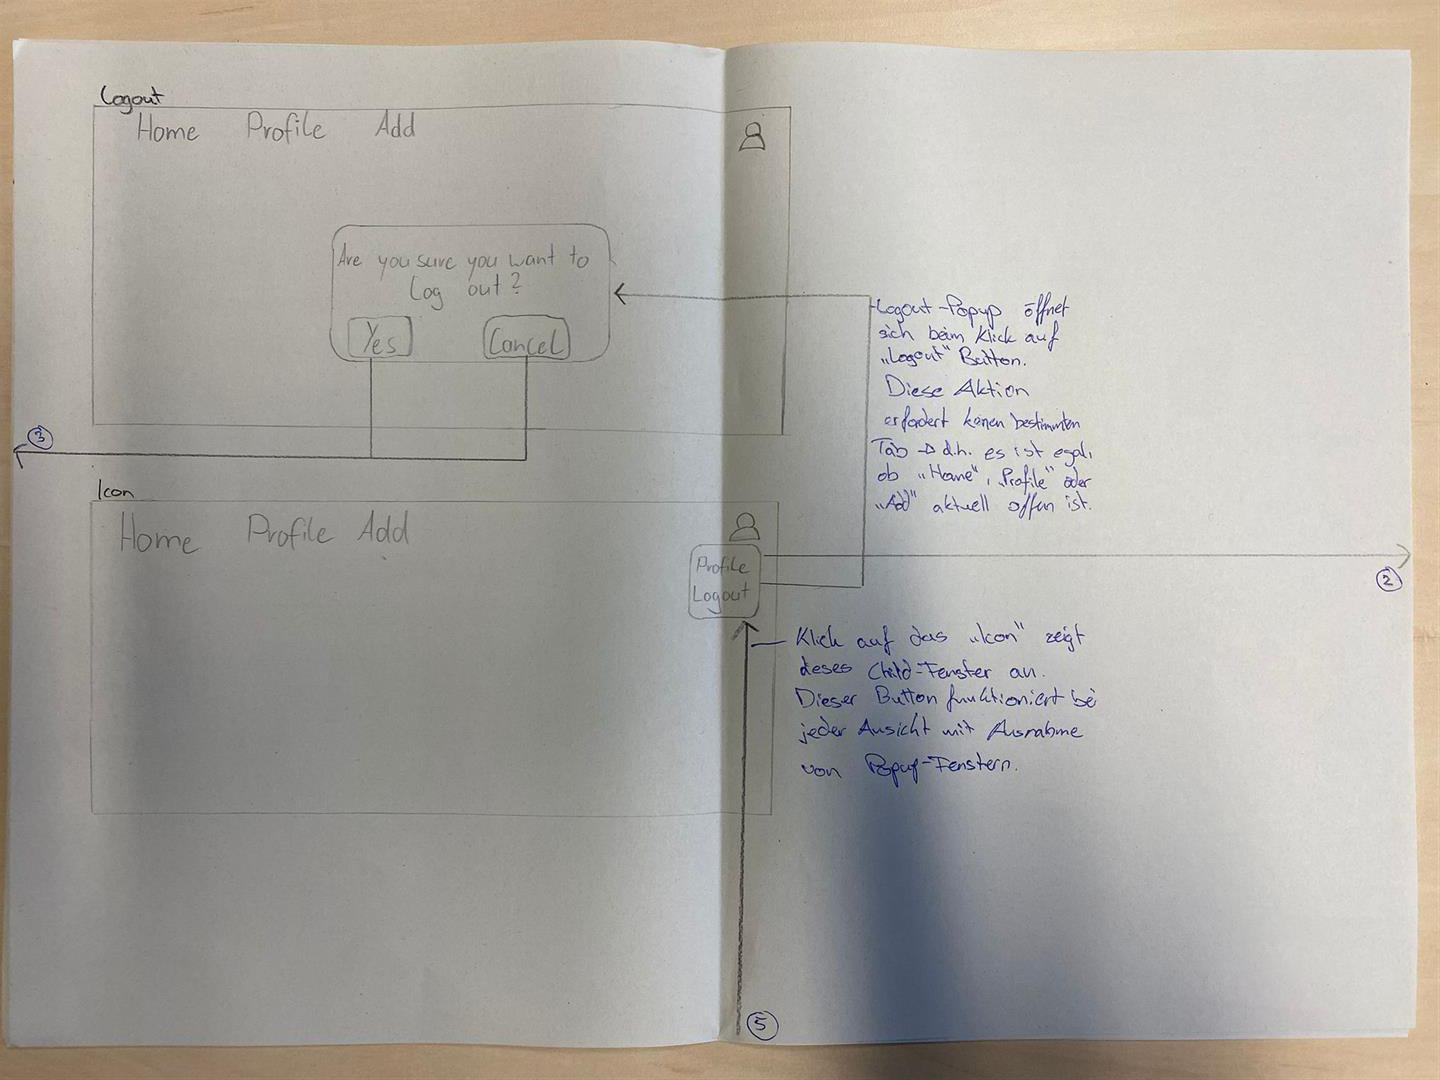 Logout
Home Profile Add
Are you sure you want to
Log out?
Yes Cancel
-Logout-Popup öffnet
sich beim Klick auf
„Logout" Button.
Diese Aktion
erfordert keinen bestimmten
Tab → d.h. es ist egal,
ob „Home", „Profile" oder
„Add" aktuell offen ist.
3
Icon
Home Profile Add
Profile
Logout
2
Klick auf das „Icon" zeigt
dieses Child-Fenster an.
Dieser Button funktioniert bei
jeder Ansicht mit Ausnahme
von Popup-Fenstern.
5